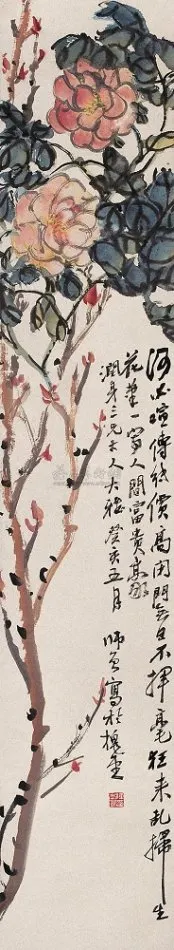 何必喧傳紙價高閉門無日不揮毫狂來亂掃生
花筆一寫人間富貴豪
潤身三兄大人大雅癸亥五月
師曾寫於槐堂